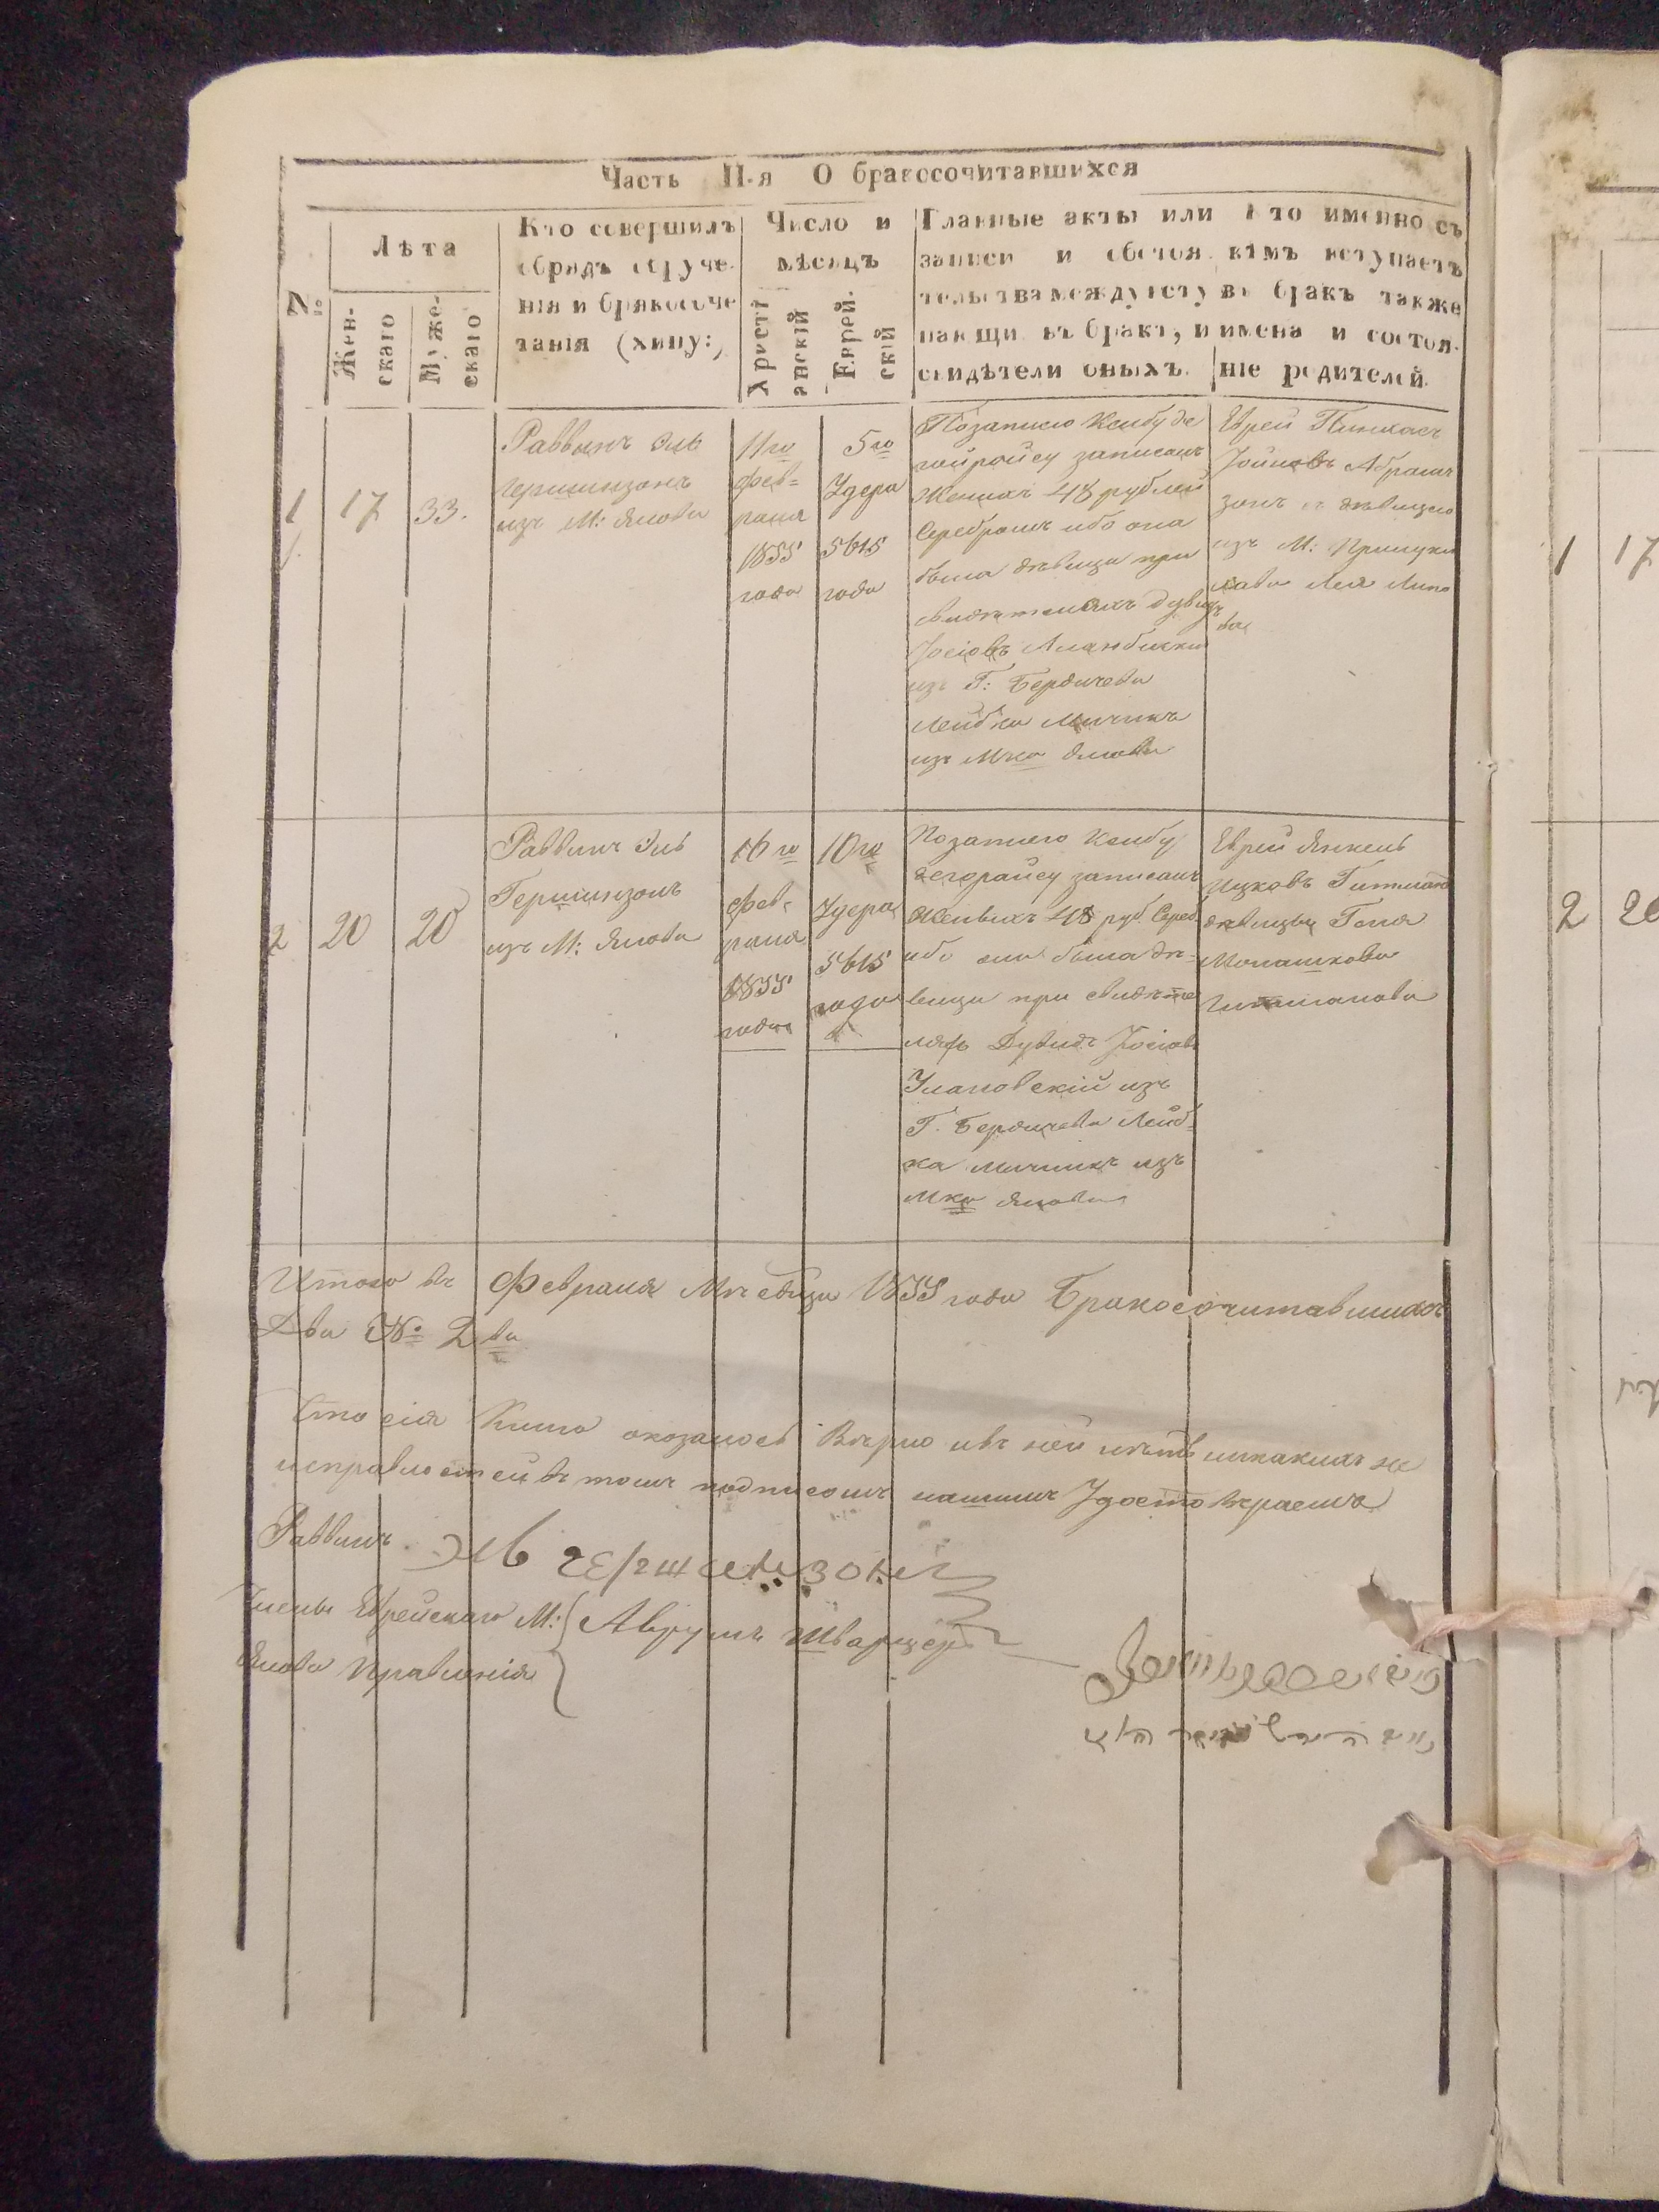 Часть II-я О бракосочитавшихся
№
Лѣта
Жен-
скаго
Муже-
скаго
Кто совершилъ
обрядъ обруче-
нія и бракосоче
танія (хипу:)
Число и
мѣсяцъ
Христі
анскій
Еврей-
скій
Главные акты или
записи и обстоя
тельства между всту
пающи въ бракъ, и
свидѣтели оныхъ.
Кто именно съ
кѣмъ вступаетъ
въ бракъ также
имена и состоя-
ніе родителей.
1
17
33.
Раввинъ Эль
Гершинзонъ
изъ М: Янова
11го
Фев=
раля
1855
года
5го
Удера
5615
года
Позаписю Ксибу де
записанъ
Женихъ 48 рублей
Серебромъ ибо она
была дѣвица при
свидѣтеляхъ Дувидъ
Іосіовъ
изъ Г: Бердичева
Лейбка Мичникъ
изъ Мка Янова
Еврей Пинхасъ
Абрам
зонъ съ дѣвицею
изъ М:
Лея
2
20
20
Раввинъ Эль
Гершинзонъ
изъ М: Янова
16го
Фев-
раля
1855
года
10го
Удера
5615
года
Позаписю Ксибу
записанъ
Женихъ 48 руб. Сереб
ибо она была дѣ-
вица при свидѣте
ляхъ Дувидъ Іосіовъ
Улановскій изъ
Г. Бердичева Лейб-
ка Мичникъ изъ
Мка Янова
Еврей Янкель
Ицковъ Гитман
дѣвицы
Монашкова
Гитманова
Итого въ Февраля Мѣсяца 1855 года Бракосочитавшихъ
Два № 2ва
Что сія Книга оказалось Вѣрно ивъ ней нѣтъ никакихъ не
исправностей въ томъ подписомъ нашимъ Удостовѣраемъ
Раввинъ Эль Гершензонъ
Члены Еврейскаго М: Аврумъ Шварцеръ
Янова Правленія
1 17
2 20